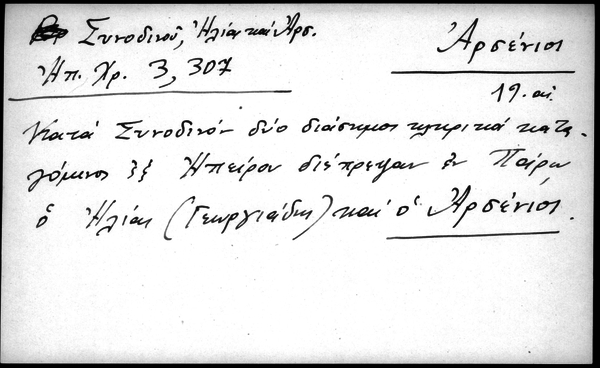 Συνοδινοῦ, Ἠλίας καὶ Ἀρσ.
Ἠπ. Χρ. 3, 307
Ἀρσένιος
19. αἰ.
Κατά Συνοδινόν δύο διάσημοι κληρικοί κατα-
γόμενοι ἐξ Ἠπείρου διέπρεψαν ἐν Πάρῳ
ὁ Ἠλίας (Γεωργιάδης) καί ὁ Ἀρσένιος.